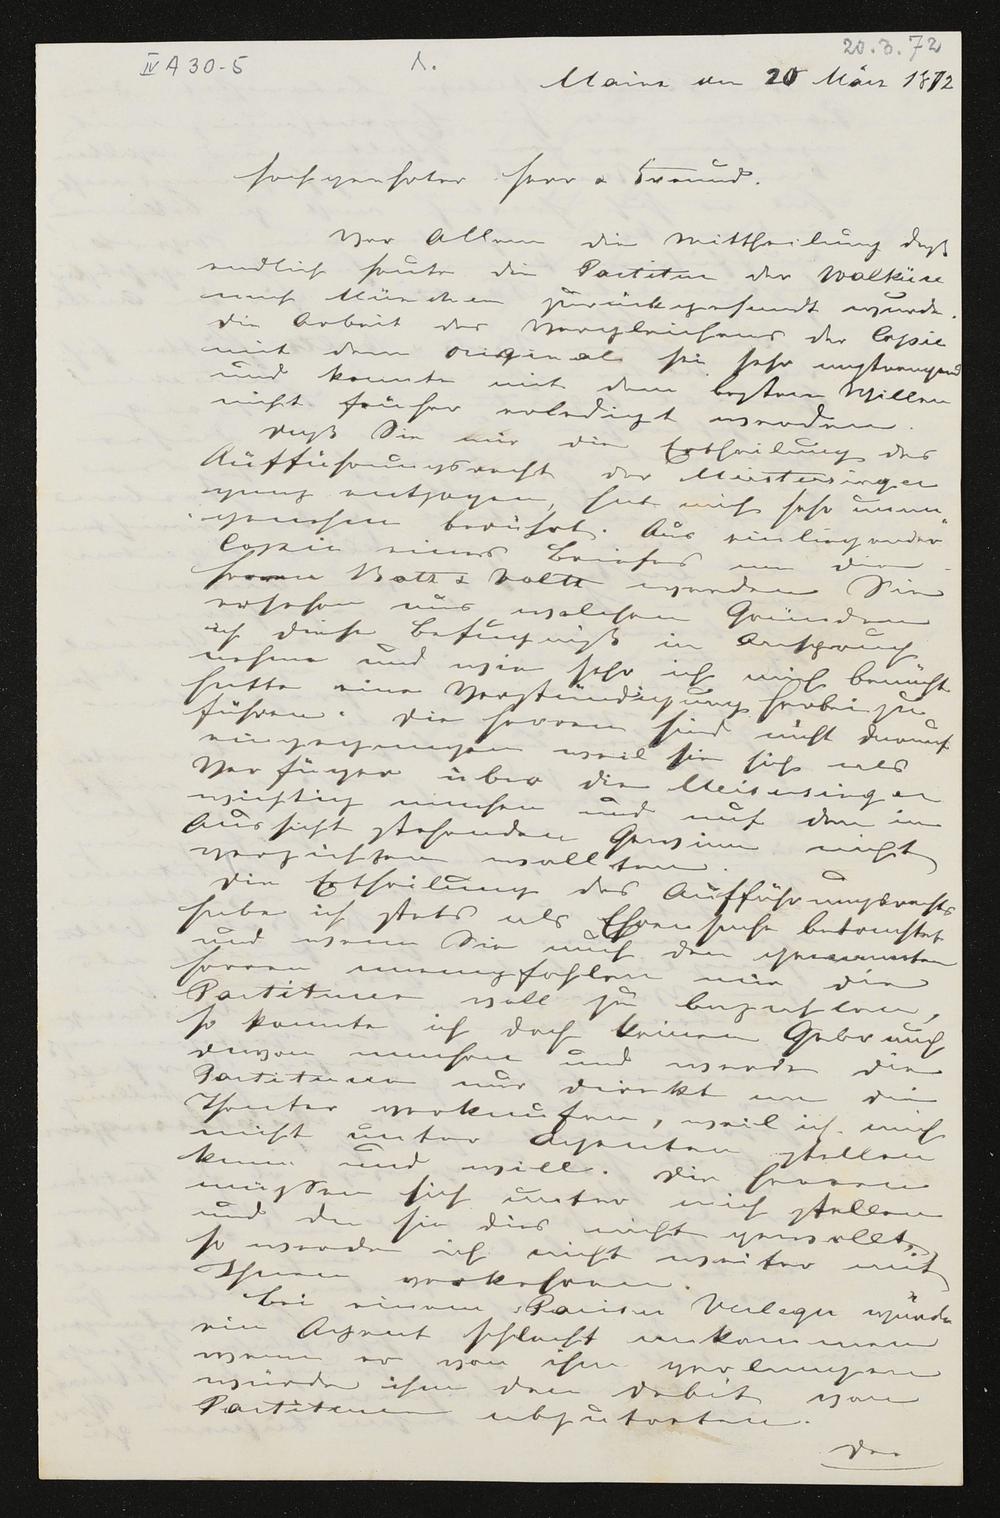 IV A 30-5
1.
20.3.72
Mainz den 20 März 1872
Hochgeehrter Herr & Freund.
Vor Allem die Mittheilung daß
endlich heute die Partitur der Walküre
nach München zurückgesandt wurde.
Die Arbeit des Vergleichens der Copie
mit dem Original sei sehr anstrengend
und konnte mit dem besten Willen
nicht früher erledigt werden.
Daß Sie mir die Ertheilung des
Aufführungsrecht der Meistersinger
ganz entzogen, hat mich sehr unan„
„genehm berührt. Aus einliegender
Copie eines Briefes an die
Herren Batz & Voltz werden Sie
ersehen aus welchen Gründen
ich diese Befugniß in Anspruch
nehme und wie sehr ich mich bemüht
hatte eine Verständigung herbei zu
führen. Die Herren sind nicht darauf
eingegangen weil sie sich als
Verfüger über die Meistersinger
wichtig machen und auf den in
Aussicht stehenden Gewinn nicht
verzichten wollten.
Die Ertheilung des Aufführungsrechts
habe ich stets als Ehrensache betrachtet
und wenn Sie auch den genannten
Herren anempfohlen mir die
Partituren voll zu bezahlen,
so konnte ich doch keinen Gebrauch
davon machen und werde die
Partituren nur direkt an die
Theater verkaufen, weil ich mich
nicht unter Agenten stellen
kann und will. Die Herren
müssen sich unter mich stellen
und da sie dies nicht gewollt,
so werde ich nicht weiter mit
Ihnen verkehren.
Bei einem Pariser Verleger würde
ein Agent schlecht ankommen
wenn er von ihm verlangen
würde ihm den Debit von
Partituren abzutreten.
Der